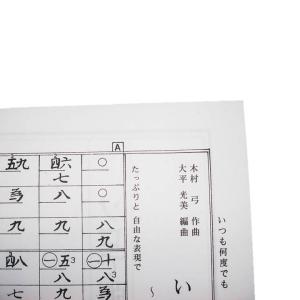 いつも何度でも
い
〜
木村 弓 作曲
大平 光美 編曲
たっぷりと 自由な表現で
A
○ ○ 八 九 ㊀十 八3 九
四六 七 八 九 ㊀五3 八 九
五九 為 九 四八 為